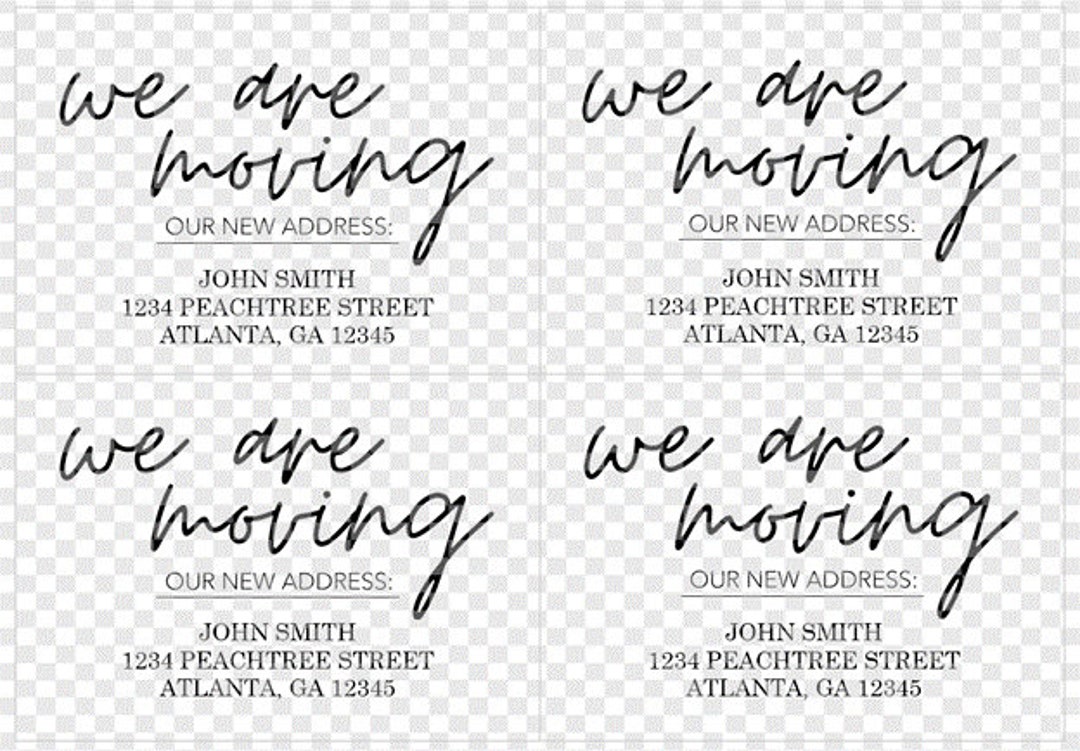 we are
moving
OUR NEW ADDRESS:
JOHN SMITH
1234 PEACHTREE STREET
ATLANTA, GA 12345
we are
moving
OUR NEW ADDRESS:
JOHN SMITH
1234 PEACHTREE STREET
ATLANTA, GA 12345
we are
moving
OUR NEW ADDRESS:
JOHN SMITH
1234 PEACHTREE STREET
ATLANTA, GA 12345
we are
moving
OUR NEW ADDRESS:
JOHN SMITH
1234 PEACHTREE STREET
ATLANTA, GA 12345